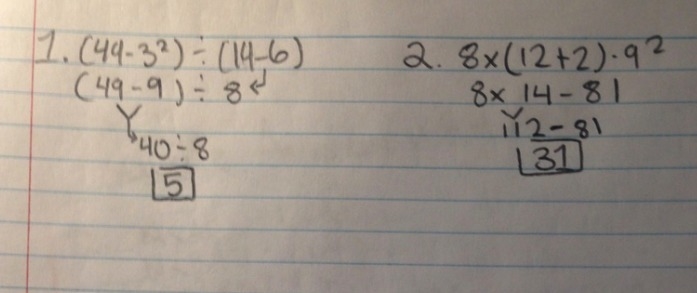 1. (49-3²) ÷ (14-6)
(49-9) ÷ 8
40÷8
5
2. 8×(12+2)-9²
8× 14-81
112-81
31